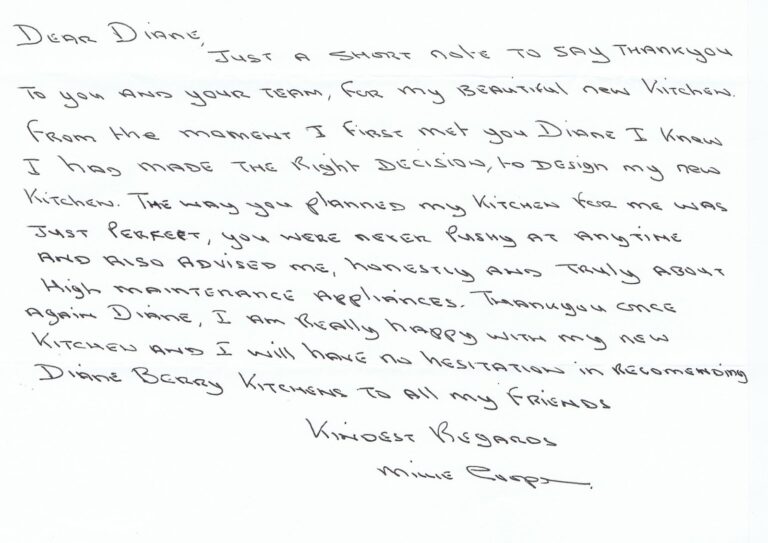 Dear Diane,
Just a short note to say thankyou
to you and your team, for my beautiful new kitchen.
From the moment I first met you Diane I knew
I had made the right decision, to design my new
kitchen. The way you planned my kitchen for me was
just perfect, you were never pushy at anytime
and also advised me, honestly and truly about
high maintenance appliances. Thankyou once
again Diane, I am really happy with my new
kitchen and I will have no hesitation in recomending
Diane Berry Kitchens to all my friends
Kindest Regards
Millie